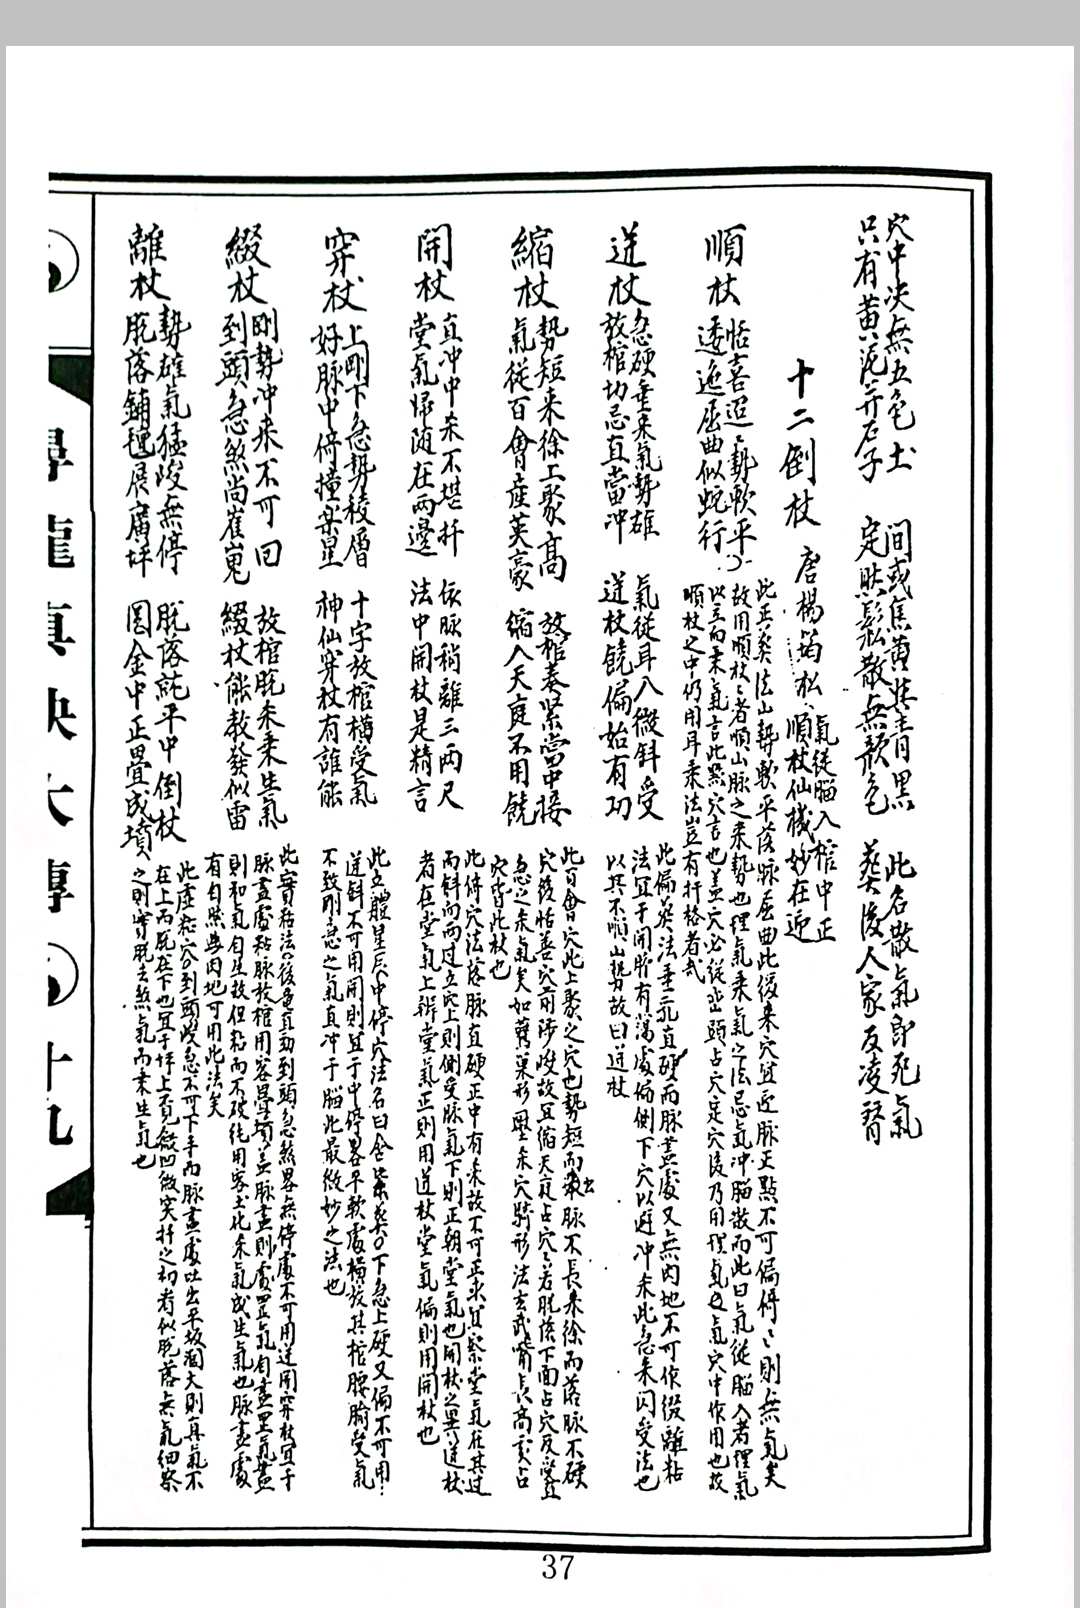 穴中決無五色土　間或焦黃與青黑　此名散氣即死氣
只有黃泥并石子　定然鬆散無顏色　葬後人家反凌替
十二倒杖　唐楊筠松
順杖
恬喜迢迢勢軟平　氣從腦入棺中正
逶迤屈曲似蛇行　順杖仙機妙在迎
此正葬法山勢軟平落脉屈曲此後來穴宜迎脉正點不可偏倚倚則無氣矣
故用順杖順者順山脉之來勢也理氣乘氣之法忌氣冲腦散而此曰氣從腦入者理氣
以立向乘氣言此點穴言也蓋穴必從巒頭占穴定穴後乃用理氣氣穴中作用也故
順杖之中仍用耳乘法豈有扞格者哉
逆杖
急硬重來氣勢雄　氣從耳入微斜受
放棺切忌直當冲　逆杖饒偏始有功
此偏葬法重元直硬而脉盡處又無肉地不可作綴離粘
法宜于開肹有蕩處偏側下穴以避冲來此急來閃受法也
以其不順山勢故曰逆杖
縮杖
勢短來徐上聚高　放棺奏緊當中接
氣從百會產英豪　縮入天庭不用饒
此百會穴此上聚之穴也勢短而脉不長來徐而落脉不硬
穴後恬善穴前陟峻故宜縮天庭占穴若脫落下面占穴反受
急之來氣矣如鶯巢形壓來穴騎形法玄武嘴長高處占
穴皆此杖也
開杖
直冲中來不堪扦　依脉稍離三兩尺
堂氣歸隨在兩邊　法中開杖是精言
此倚穴法落脉直硬正中有來故不可正求宜察堂氣在其过
而斜向而过立穴上則倒受脉氣下則正朝堂氣也開杖之異逆杖
者在堂氣上辨堂氣正則用逆杖堂氣偏則用開杖也
穿杖
上剛下急勢稜層　十字放棺橫受氣
好脉中停撞樂星　神仙穿杖有誰能
此立體星辰中停穴法名曰合葬下急上硬又偏不可用
逆斜不可用開則宜于中停畧平軟處橫放其棺腰腧受氣
不致剛急之氣直冲于腦此最微妙之法也
綴杖
剛勢冲來不可回　放棺脫來乘生氣
到頭急煞尚崔嵬　綴杖能教發似雷
此實粘法後龍直勁到頭急煞畧無停處不可用逆開穿杖宜于
脉盡處粘脉放棺用客土壘墳蓋脉盡則處罡氣自盡罡氣盡
則和氣自生故但粘而不破純用客土化來氣成生氣也脉盡處
有自然無肉地可用此法矣
離杖
勢雄氣猛峻無停　脫落就平中倒杖
脫落鋪氊展廣坪　圓金中正疊成墳
此虛粘穴到頭峻急不可下手而脉盡處吐出平坡濶大則真氣不
在上而脫在下也宜于坪上覓微凹微突扦之初看似脫落無氣細察
之則實脫去煞氣而乘生氣也
尋龍真訣大傳　十九
37